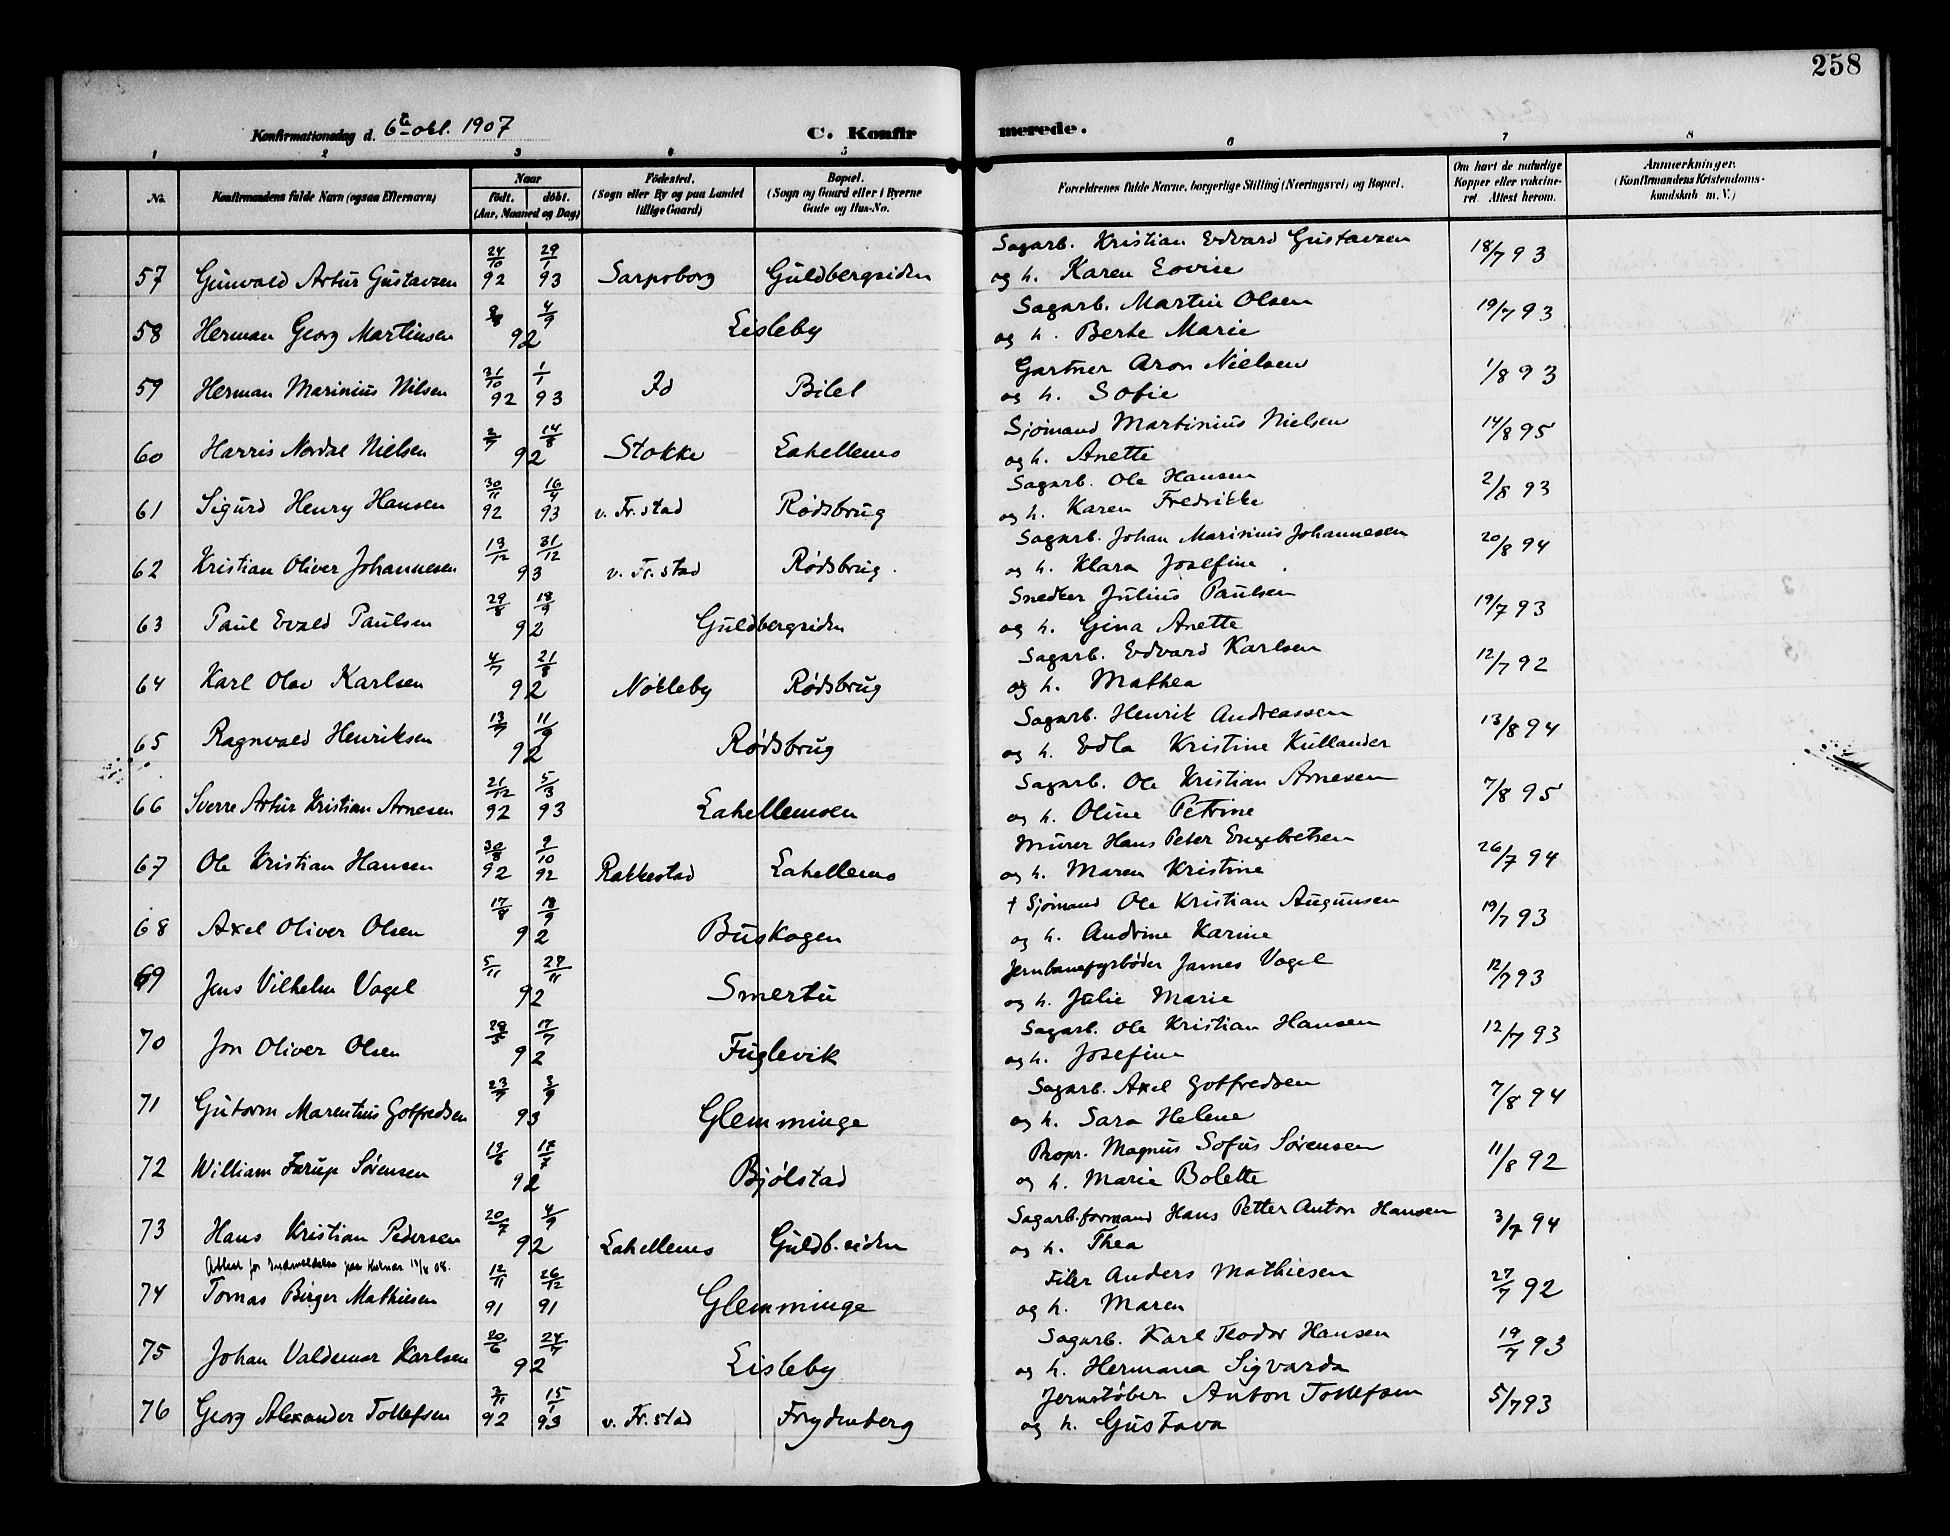 258
Konfirmationsdag d. 6te okt. 1907 C. Konfirmerede.
1 2 3 4 5 6 7 8
No. Konfirmandens fulde Navn (ogsaa Efternavn) Naar født. døbt. (Aar, Maaned og Dag) Fødested. (Sogn eller By og paa Landet tillige Gaard) Bopæl. (Sogn og Gaard eller i Byerne Gade og Hus-No. Forældrenes fulde Navne, borgerlige Stilling (Næringsvei) og Bopæl. Om havt de naturlige Kopper eller vaccineret. Attest herom. Anmærkninger. (Konfirmandens Kristendomskundskab m. V.)
57 Gunvald Artur Gustavsen 24/10 92 29/1 93 Sarpsborg Guldbergsiden Sagarb. Kristian Edvard Gustavsen 18/7 93
og h. Karen Lovise
58 Herman Georg Martinsen 4/9 92 Lisleby Sagarb. Martin Olsen 19/7 93
og h. Berte Marie
59 Herman Marinius Nilsen 31/10 92 1/1 93 Id Bilet Gartner Aron Nielsen 1/8 93
og h. Sofie
60 Harris Nordal Nielsen 2/7 14/8 92 Stokke Lahellemo Sjømand Martinius Nielsen 14/8 95
og h. Anette
61 Sigurd Henry Hansen 30/11 92 16/4 93 v. Fr.stad Rødsbrug Sagarb. Ole Hansen 2/8 93
og h. Karen Fredrikke
62 Kristian Oliver Johannesen 13/12 31/12 93 v. Fr.stad Rødsbrug. Sagarb. Johan Marinius Johannesen 20/8 94
og h. Klara Josefine
63 Paul Evald Paulsen 29/8 18/9 92 Guldbergsiden Snedker Julius Paulsen 19/7 93
og h. Gina Anette
64 Karl Olav Karlsen 4/7 21/8 92 Nokleby Rødsbrug Sagarb. Edvard Karlsen 12/7 92
og h. Mathea
65 Ragnvald Henriksen 13/7 11/9 92 Rødsbrug Sagarb. Henrik Andreassen 13/8 94
og h. Edla Kristine Kullander
66 Sverre Artur Kristian Arnesen 21/12 92 5/3 93 Lahellemoen Sagarb. Ole Kristian Arnesen 7/8 95
og h. Oline Petrine
67 Ole Kristian Hansen 30/8 92 9/10 92 Rakkestad Lahellemo Murer Hans Peter Engebretsen 26/7 94
og h. Maren Kristine
68 Axel Oliver Olsen 17/8 18/9 92 Buskogen † Sjømand Ole Kristian Augunsen 19/7 93
og h. Andrine Karine
69 Jens Vilhelm Vogel 5/11 27/11 92 Smertu Jernbanefyrbøder James Vogel 12/7 93
og h. Julie Marie
70 Jon Oliver Olsen 29/5 17/7 92 Fuglevik Sagarb. Ole Kristian Hansen 12/7 93
og h. Josefine
71 Gutorm Marentius Gotfredsen 23/7 3/9 93 Glemminge Sagarb. Axel Gotfredsen 7/8 94
og h. Sara Helene
72 William Farup Sørensen 19/6 17/7 92 Bjølstad Propr. Magnus Sofus Sørensen 11/8 92
og h. Marie Bolette
73 Hans Kristian Pedersen 20/7 4/9 92 Lahellemo Guldb.siden Sagarb.formand Hans Petter Anton Hansen 3/7 94
og h. Thea
Attest for
74 Tomas Birger Mathiesen 12/11 91 26/12 91 Glemminge Filer Anders Mathiesen 27/7 92
og h. Maren
75 Johan Valdemar Karlsen 20/6 24/7 92 Lisleby Sagarb. Karl Teodor Hansen 19/7 93
og h. Hermana Sigvarda
76 Georg Alexander Tollefsen 3/11 92 15/1 93 v. Fr.stad Frydenberg Jernstøber Anton Tollefsen 5/7 93
og h. Gustava